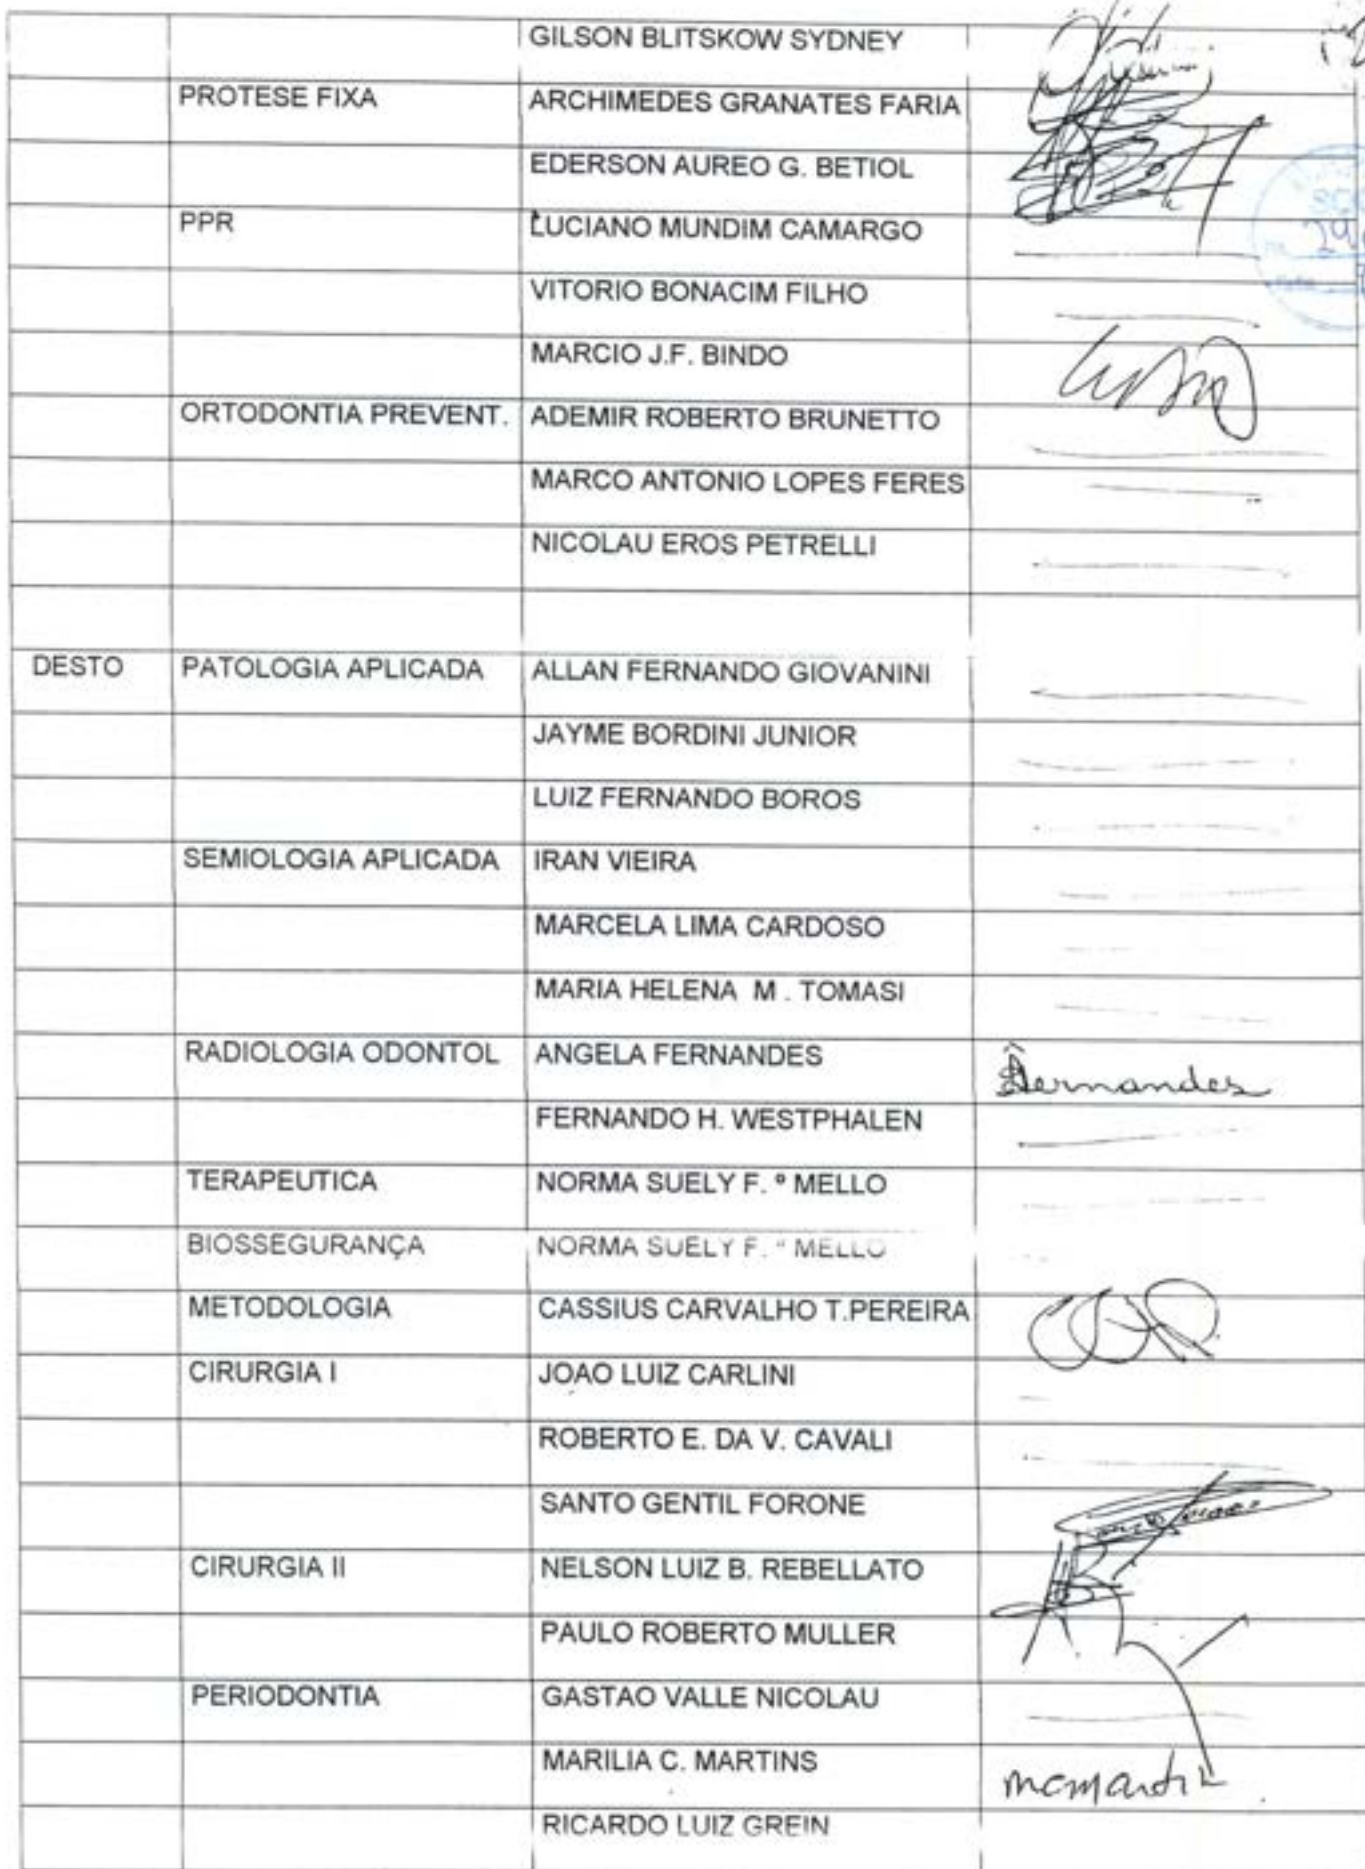 GILSON BLITSKOW SYDNEY
PROTESE FIXA ARCHIMEDES GRANATES FARIA
EDERSON AUREO G. BETIOL
PPR LUCIANO MUNDIM CAMARGO
VITORIO BONACIM FILHO
MARCIO J.F. BINDO
ORTODONTIA PREVENT. ADEMIR ROBERTO BRUNETTO
MARCO ANTONIO LOPES FERES
NICOLAU EROS PETRELLI
DESTO PATOLOGIA APLICADA ALLAN FERNANDO GIOVANINI
JAYME BORDINI JUNIOR
LUIZ FERNANDO BOROS
SEMIOLOGIA APLICADA IRAN VIEIRA
MARCELA LIMA CARDOSO
MARIA HELENA M . TOMASI
RADIOLOGIA ODONTOL ANGELA FERNANDES Fernandes
FERNANDO H. WESTPHALEN
TERAPEUTICA NORMA SUELY F. º MELLO
BIOSSEGURANÇA NORMA SUELY F. º MELLO
METODOLOGIA CASSIUS CARVALHO T.PEREIRA
CIRURGIA I JOAO LUIZ CARLINI
ROBERTO E. DA V. CAVALI
SANTO GENTIL FORONE
CIRURGIA II NELSON LUIZ B. REBELLATO
PAULO ROBERTO MULLER
PERIODONTIA GASTAO VALLE NICOLAU
MARILIA C. MARTINS
RICARDO LUIZ GREIN